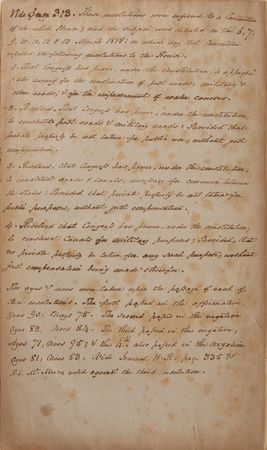 Vide page 313. These resolutions were referred to a Committee
of the whole House; and the subject was debated on the 6, 7,
9, 10, 11, 12 & 13 March 1818: on which day that Committee
reported the following resolutions to the House.
1. That Congress has power, under the Constitution, to appropri-
ate money for the construction of post roads, military &
other roads, & for the improvement of water courses.
2. Resolved, That Congress has power, under the constitution,
to construct post roads & military roads: Provided that
private property be not taken for public use, without just
compensation.
3. Resolved, that Congress has power, under the constitution,
to construct roads & canals, necessary for commerce between
the States: Provided that private property be not taken for
public purposes, without just compensation.
4. Resolved that Congress has power, under the constitution,
to construct Canals for military purposes; Provided, that
no private property be taken for any such purpose, without
just compensation being made therefor.
The ayes & noes were taken upon the passage of each of
these resolutions. The first passed in the affirmative
Yeas 90. Nays 75. The second passed in the negative
Ayes 82, Noes 84. The third passed in the negative;
Ayes 71, Noes 95; & the 4th also passed in the negative
Ayes 81, Noes 83. Vide Journal H. R. page 335 &
voted against the third resolution.